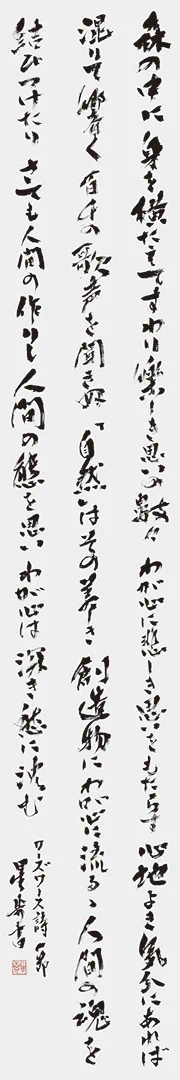 森の中に身を横たえてすわり樂しき思いの數々わが心に悲しき思いをもたらす心地よき氣分にあれば
混りて響く百千の歌声を聞きぬ「自然」はその美き創造物にわが心に流るゝ人間の魂を
結びつけたりさても人間の作りし人間の態を思いわが心は深き愁に沈む
ワーズワース詩